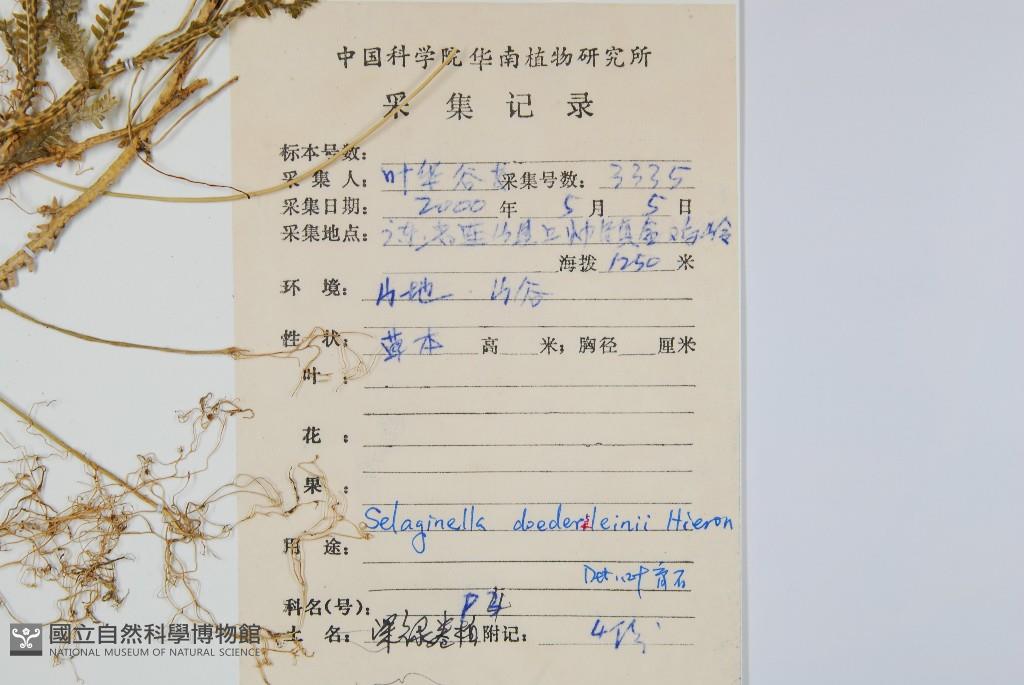 中国科学院华南植物研究所
采集记录
标本号数:
采集人: 叶华谷 采集号数: 3335
采集日期: 2000 年 5 月 5 日
采集地点: 广东 连山县上帅镇金鸡岭
海拨 1250 米
环境: 山地. 山谷
性状: 草本 高 米; 胸径 厘米
叶:
花:
果:
Selaginella doederleinii Hieron
用途:
Det.: 叶育石
科名(号):
土名: 深绿卷柏 附记: 4份
國立自然科學博物館
NATIONAL MUSEUM OF NATURAL SCIENCE